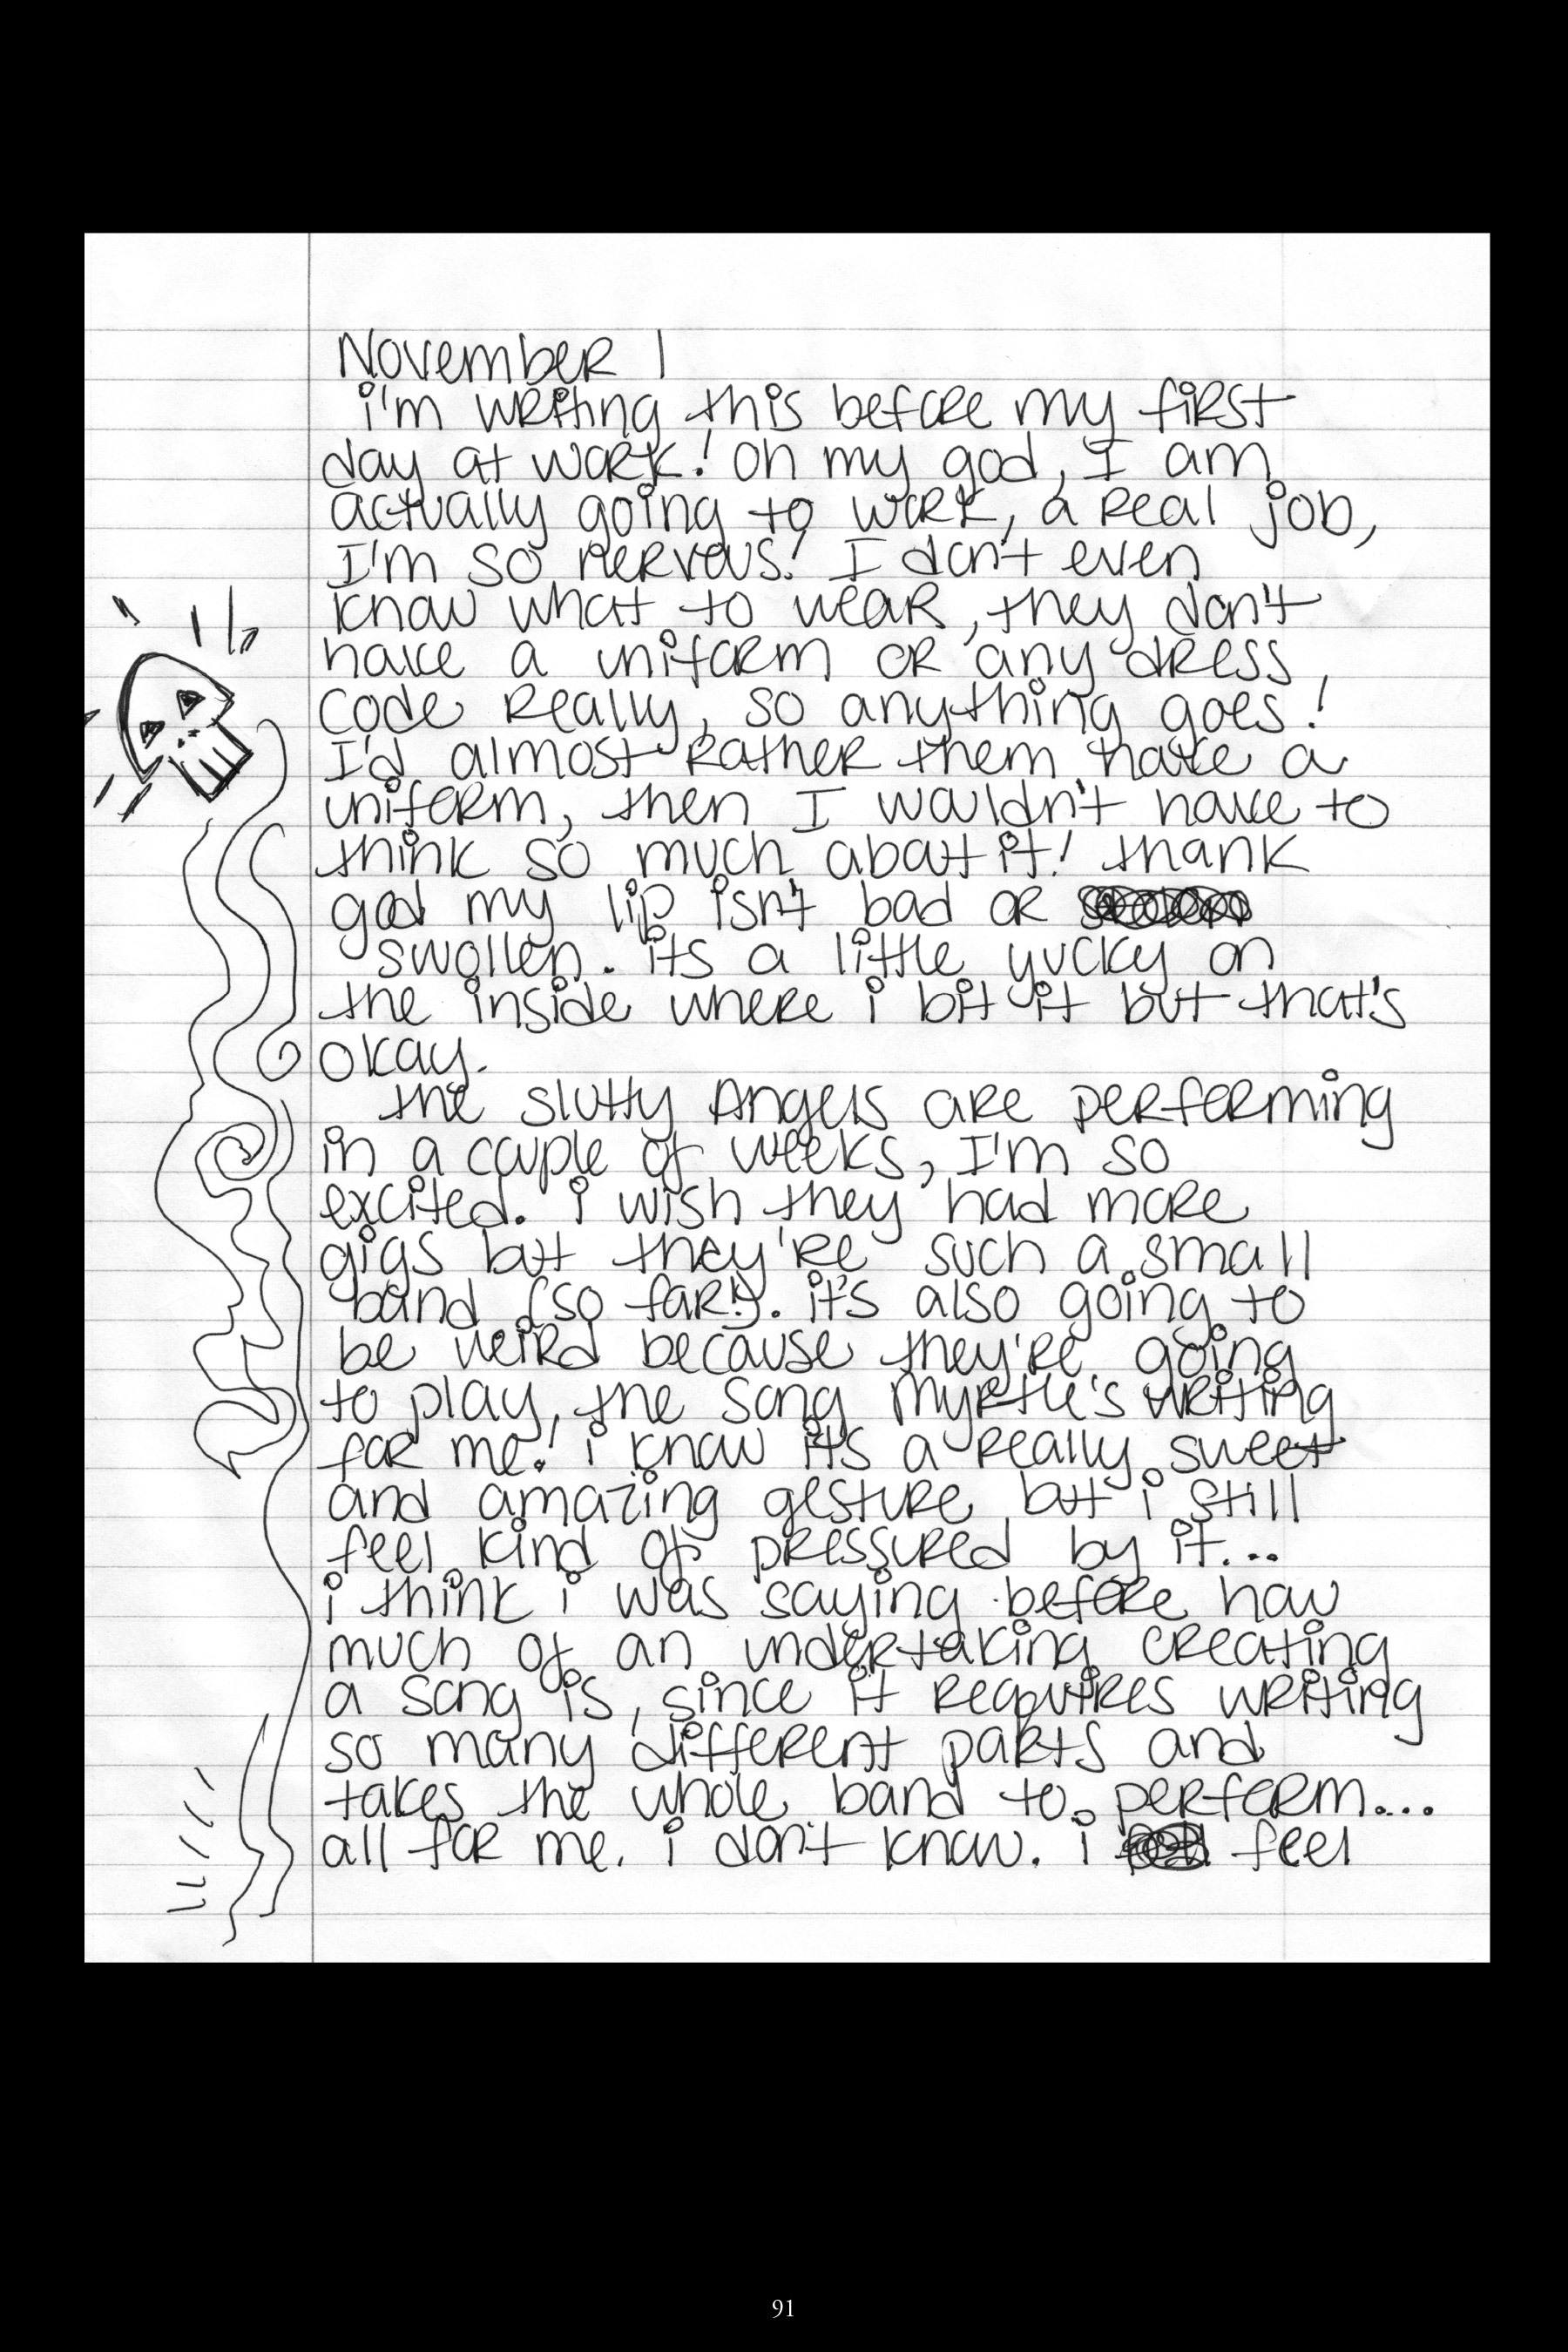 November 1
i'm writing this before my first
day at work! oh my god, I am
actually going to work, a real job,
I'm so nervous! I don't even
know what to wear, they don't
have a uniform or any dress
code really, so anything goes!
I'd almost rather them have a
uniform, then I wouldn't have to
think so much about it! thank
god my lip isn't bad or
swollen. its a little yucky on
the inside where i bit it but that's
okay.
the slutty Angels are performing
in a couple of weeks, I'm so
excited. i wish they had more
gigs but they're such a small
band (so far!). it's also going to
be weird because they're going
to play the song Myrtle's writing
for me! i know it's a really sweet
and amazing gesture but i still
feel kind of pressured by it...
i think i was saying before how
much of an undertaking creating
a song is, since it requires writing
so many different parts and
takes the whole band to perform...
all for me. i don't know. i feel
91